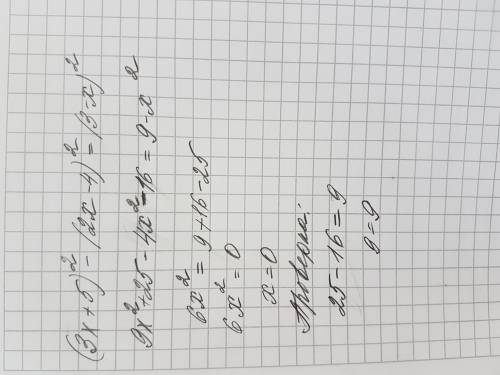 (3x+5)² - (2x-4)² = (3-x)²
9x²+25-4x²-16 = 9-x²
6x² = 9+16-25
6x² = 0
x=0
Проверка:
25-16=9
9=9